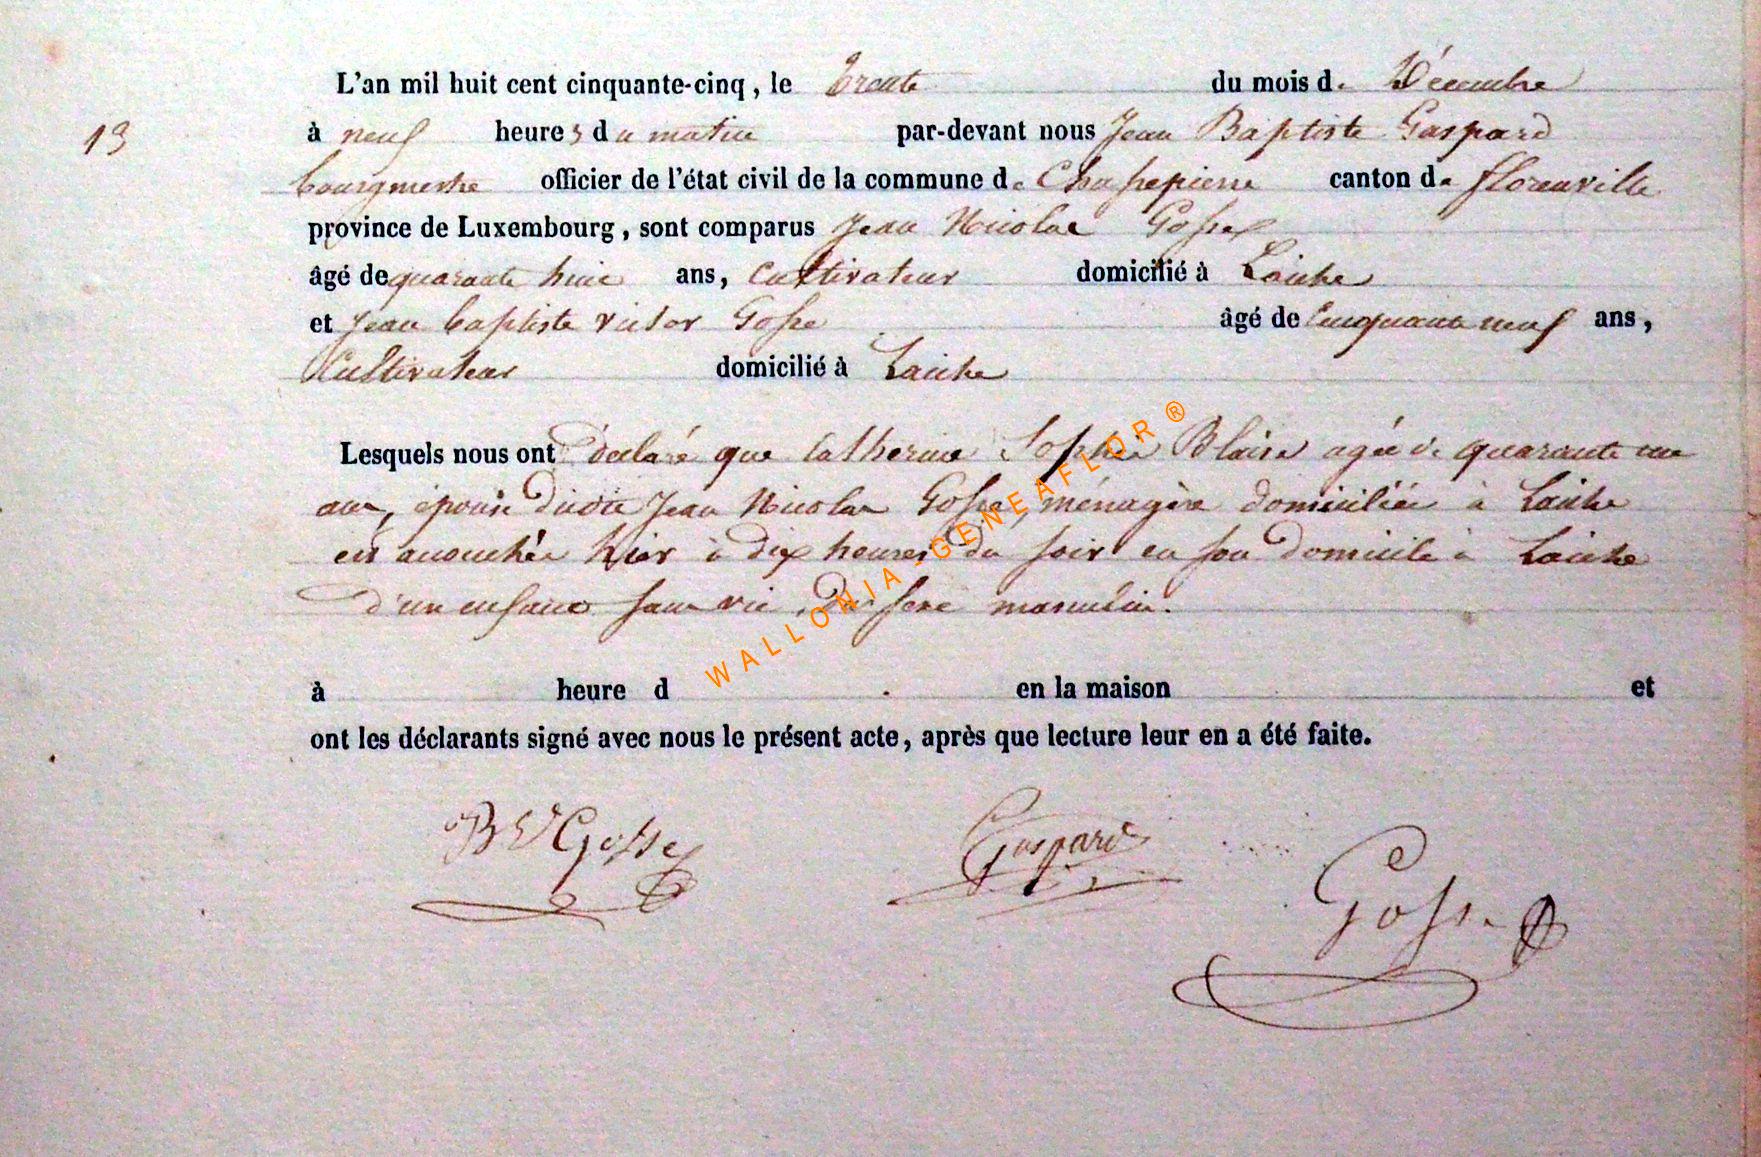 L'an mil huit cent cinquante-cinq, le trente du mois de Décembre
13
à neuf heures du matin par-devant nous Jean Baptiste Gaspard
bourgmestre officier de l'état civil de la commune de Chassepierre canton de florenville
province de Luxembourg, sont comparus Jean Nicolas Gosse
âgé de quarante huit ans, cultivateur domicilié à Laiche
et Jean baptiste victor Gosse âgé de Cinquante neuf ans,
Cultivateur domicilié à Laiche
Lesquels nous ont déclaré que Catherine Sophie Blaise agée de quarante un
ans, épouse dudit Jean Nicolas Gosse, ménagère domiciliée à Laiche
est accouchée hier à dix heures du soir en son domicile à Laiche
d'un enfant sans vie, du sexe masculin.
à heure d en la maison et
ont les déclarants signé avec nous le présent acte, après que lecture leur en a été faite.
Gosse
Gaspard
Gosse
WALLONIA-GENEAFLOR®